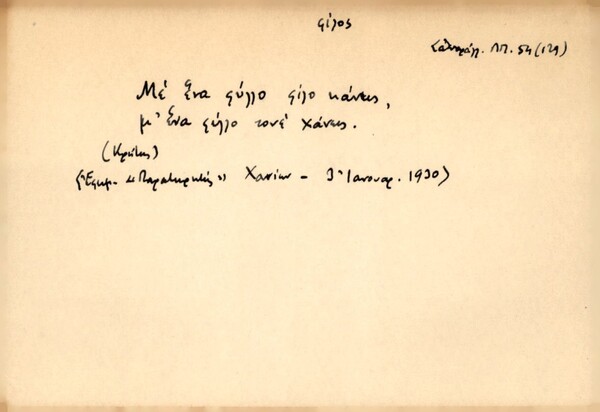 φίλος
ΛΠ. 54 (129)
Μέ ἕνα φύλλο φίλο κάνεις,
μ' ἕνα φύλλο τονέ χάνεις.
(Κρήτης)
(Ἐφημ. «Παρατηρητής» Χανίων - 3 Ἰανουαρ. 1930)